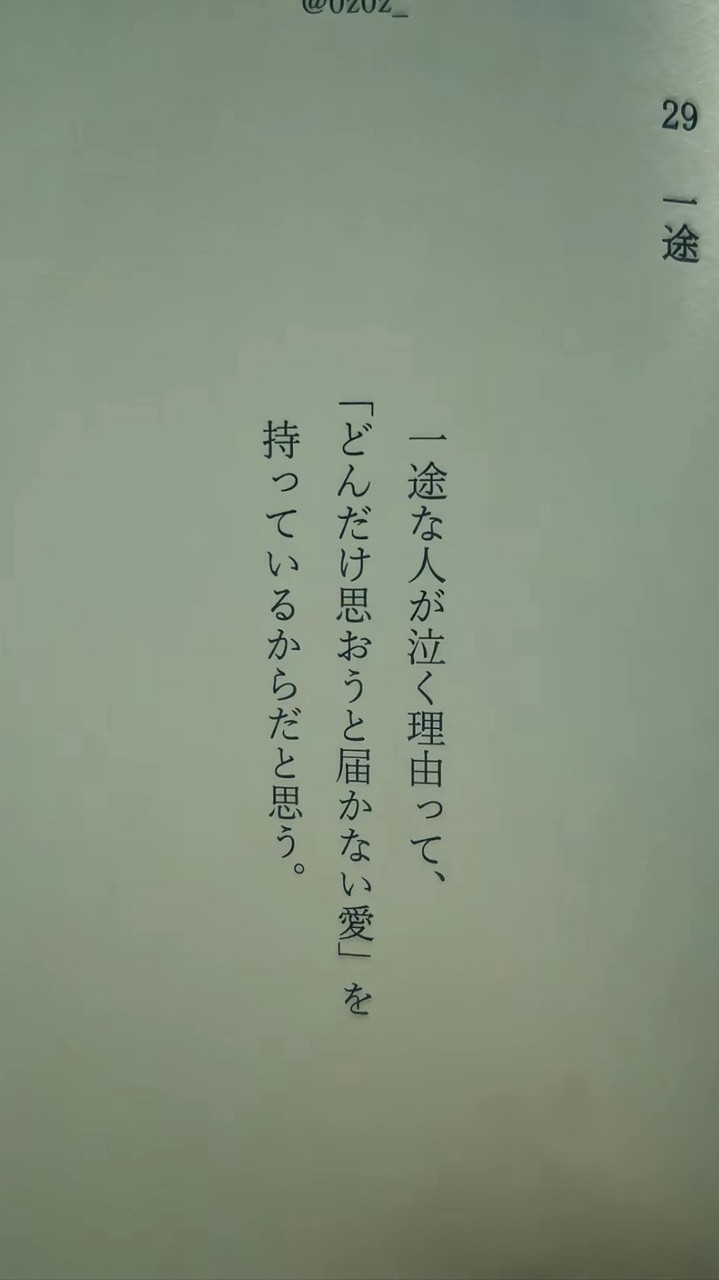 @0z0z_
29 一途
一途な人が泣く理由って、
「どんだけ思おうと届かない愛」を
持っているからだと思う。